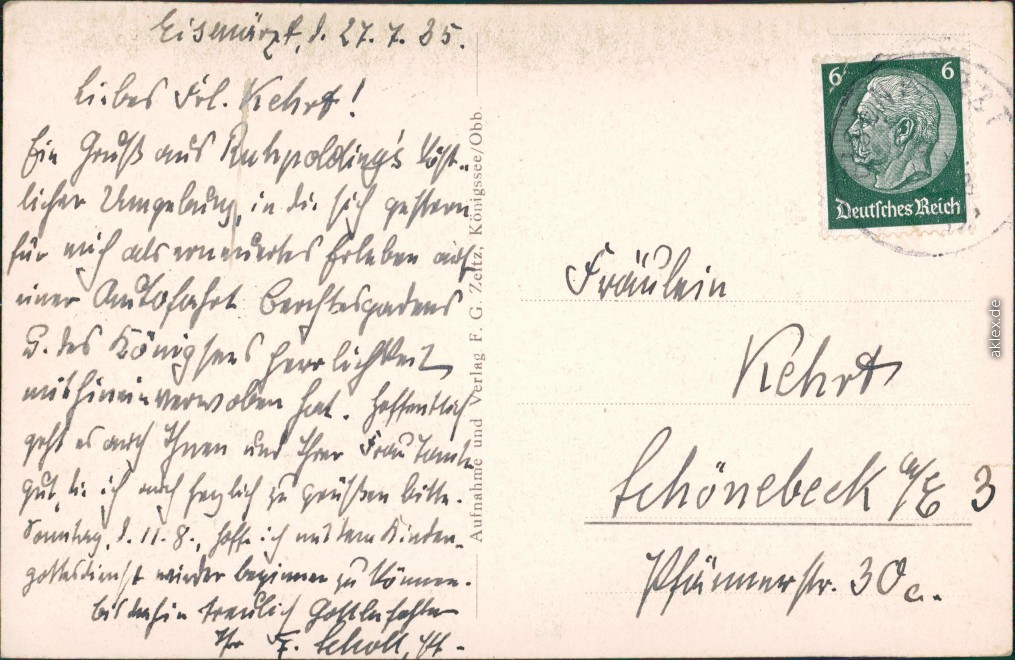 Eisenärzt, d. 27. 7. 35.
Liebes Frl. Kehrt!
Ein Gruß aus Ruhpolding's köst-
licher Umgebung, in die sich gestern
für mich als erneuertes Erleben auf
einer Autofahrt Berchtesgadens
u. des Königsees Herrlichkeit
mit hineinverwoben hat. Hoffentlich
geht es auch Ihnen und Ihrer Frau Tante
gut, die ich auch herzlich zu grüßen bitte.
Sonntag, d. 11. 8., hoffe ich mit dem Kinder-
gottesdienst wieder beginnen zu können.
Bis dahin treulich Gott befohlen
Ihr F. Scholl,
Aufnahme und Verlag F. G. Zeitz, Königssee/Obb
6 6
Deutsches Reich
Fräulein
Kehrt
Schönebeck a/E 3
Pfännerstr. 30a.
aklex.de